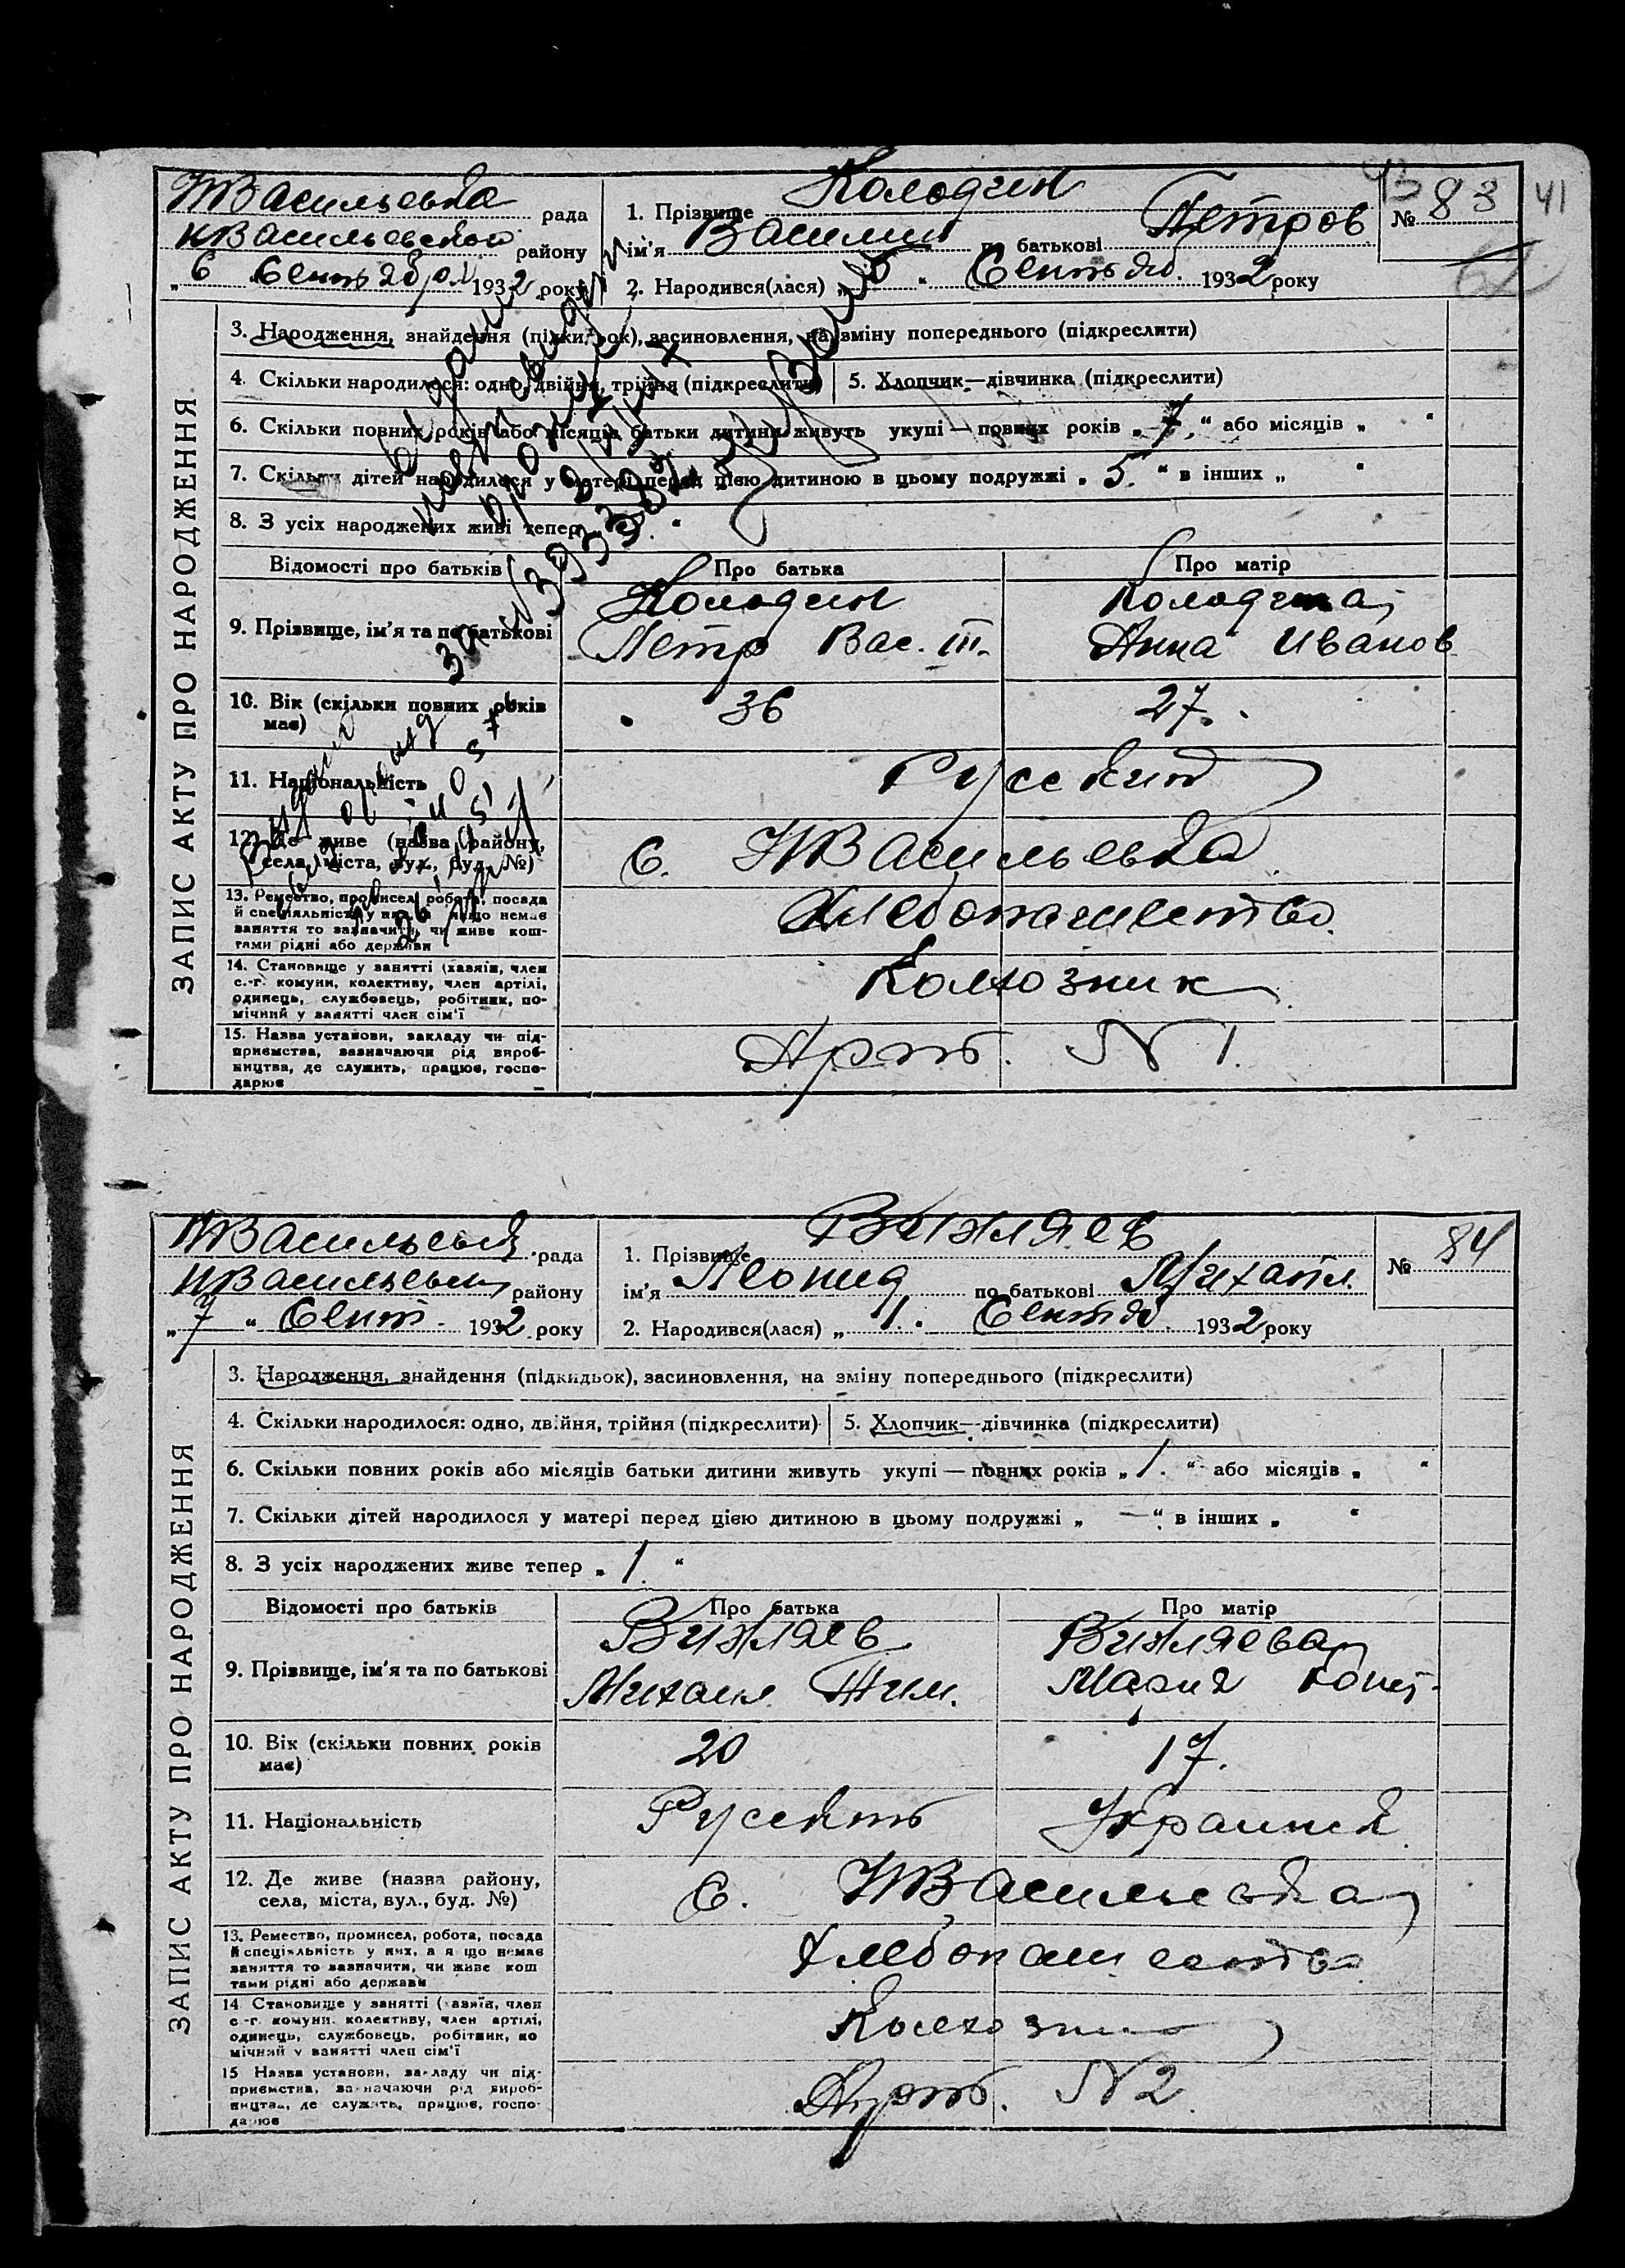 НВасильевка рада
НВасильевской району
„6 Сентября 1932 року
1. Прізвище Колодчин
ім'я Василий по батькові Петров
2. Народився(лася) „5“ Сентяб. 1932 року
№ 83
41
ЗАПИС АКТУ ПРО НАРОДЖЕННЯ
3. Народження, знайдення (підкидьок), засиновлення, на зміну попереднього (підкреслити)
4. Скільки народилося: одно, двійня, трійня (підкреслити)
5. Хлопчик—дівчинка (підкреслити)
6. Скільки повних років або місяців батьки дитини живуть укупі — повних років „7.“ або місяців „ “
7. Скільки дітей народилося у матері перед цією дитиною в цьому подружжі „5.“ в інших „ “
8. З усіх народжених живі тепер
Відомості про батьків
Про батька
Про матір
9. Прізвище, ім'я та по батькові
Петр Вас. III.
Анна Иванов
10. Вік (скільки повних років має)
36
27.
11. Національність
Русский
12. Де живе (назва району, села, міста, вул., буд. №)
с. НВасильевка
13. Ремество, промисел, робота, посада
й спеціяльність у них, а якщо немає
заняття то зазначити, чи живе кош-
тами рідні або держави
Хлебопашество.
14. Становище у занятті (хазяїн, член
с.-г. комуни, колективу, член артілі,
одинець, службовець, робітник, по-
мічний у занятті член сім'ї
Колхозник
15. Назва установи, закладу чи під-
приємства, зазначаючи рід вироб-
ництва, де служить, працює, госпо-
дарює
Арт. N 1.
НВасильевка рада
НВасильевск району
„7“ Сент. 1932 року
1. Прізвище Вижляев
ім'я Леонид по батькові Михайл.
2. Народився(лася) „1. Сентяб. 1932 року
№ 84
ЗАПИС АКТУ ПРО НАРОДЖЕННЯ
3. Народження, знайдення (підкидьок), засиновлення, на зміну попереднього (підкреслити)
4. Скільки народилося: одно, двійня, трійня (підкреслити)
5. Хлопчик—дівчинка (підкреслити)
6. Скільки повних років або місяців батьки дитини живуть укупі — повних років „1.“ або місяців „ “
7. Скільки дітей народилося у матері перед цією дитиною в цьому подружжі „ —“ в інших „ “
8. З усіх народжених живе тепер „1“
Відомості про батьків
Про батька
Про матір
9. Прізвище, ім'я та по батькові
Вижляев
Михаил Тим.
Вижляева
Мария Конст.
10. Вік (скільки повних років має)
20
17.
11. Національність
Украинка
12. Де живе (назва району, села, міста, вул., буд. №)
с. НВасильевка
13. Ремество, промисел, робота, посада
й спеціяльність у них, а якщо немає
заняття то зазначити, чи живе кош
тами рідні або держави
Хлебопашество
14 Становище у занятті (хазяїн, член
с.-г. комуни, колективу, член артілі,
одинець, службовець, робітник, по
мічний у занятті член сім'ї
Колхозник
15 Назва установи, закладу чи під-
приємства, зазначаючи рід вироб-
ництва, де служить, працює, госпо-
дарює
Арт. N 2.